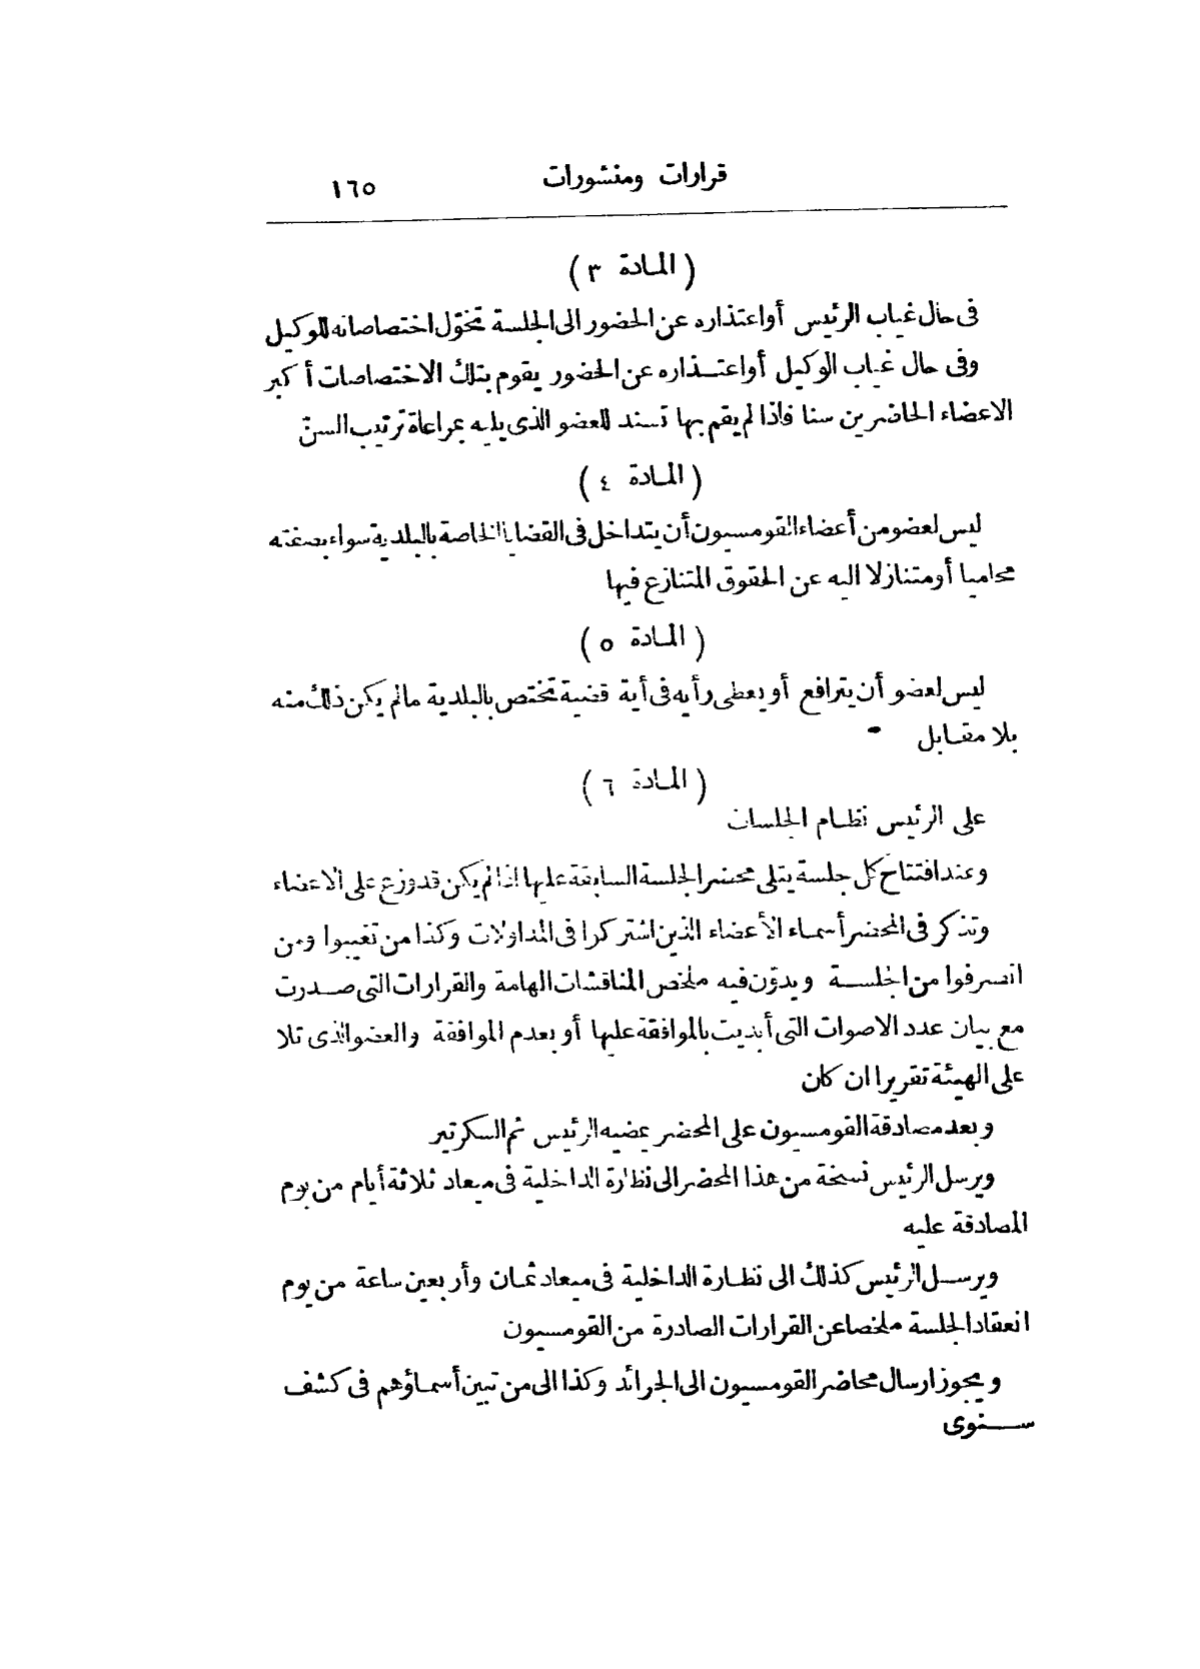 قرارات ومنشورات ١٦٥
( المادة ٣ )
فى حال غياب الرئيس أواعتذاره عن الحضور الى الجلسة تخوّل اختصاصاته للوكيل
وفى حال غياب الوكيل أواعتذاره عن الحضور يقوم بتلك الاختصاصات أكبر
الاعضاء الحاضرين سنا فاذا لم يقم بها تسند للعضو الذى يليه بمراعاة ترتيب السنّ
( المادة ٤ )
ليس لعضو من أعضاء القومسيون أن يتداخل فى القضايا الخاصة بالبلدية سواء بصفته
محاميا أومتنازلا اليه عن الحقوق المتنازع فيها
( المادة ٥ )
ليس لعضو أن يترافع أو يعطى رأيه فى أية قضية تختص بالبلدية مالم يكن ذلك منه
بلا مقابل
( المادة ٦ )
على الرئيس نظام الجلسات
وعند افتتاح كل جلسة يتلى محضر الجلسة السابقة عليها اذا لم يكن قد وزع على الاعضاء
وتذكر فى المحضر أسماء الأعضاء الذين اشتركوا فى المداولات وكذا من تغيبوا ومن
انصرفوا من الجلسة ويدوّن فيه ملخص المناقشات الهامة والقرارات التى صدرت
مع بيان عدد الاصوات التى أبديت بالموافقة عليها أو بعدم الموافقة والعضو الذى تلا
على الهيئة تقريرا ان كان
وبعد مصادقة القومسيون على المحضر يمضيه الرئيس ثم السكرتير
ويرسل الرئيس نسخة من هذا المحضر الى نظارة الداخلية فى ميعاد ثلاثة أيام من يوم
المصادقة عليه
ويرسل الرئيس كذلك الى نظارة الداخلية فى ميعاد ثمان وأربعين ساعة من يوم
انعقاد الجلسة ملخصا عن القرارات الصادرة من القومسيون
ويجوز ارسال محاضر القومسيون الى الجرائد وكذا الى من تبين أسماؤهم فى كشف
سنوى